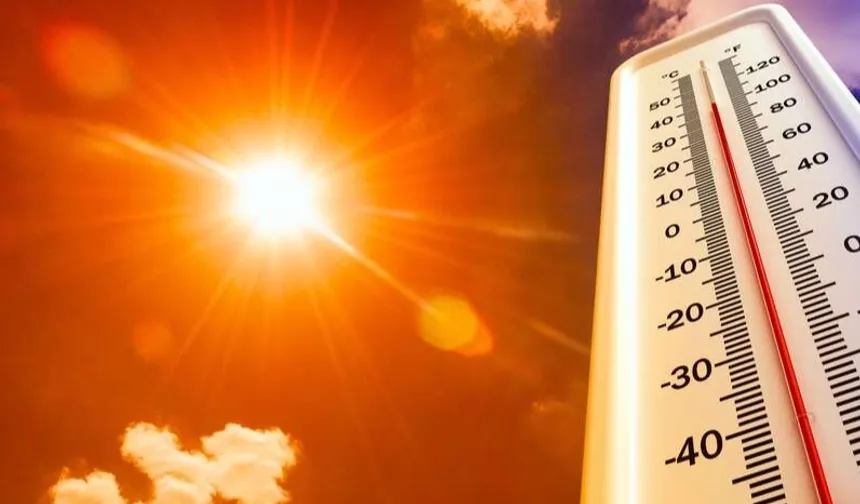 °C
50
40
30
20
10
0
-10
-20
-30
-40
°F
120
100
80
60
40
20
0